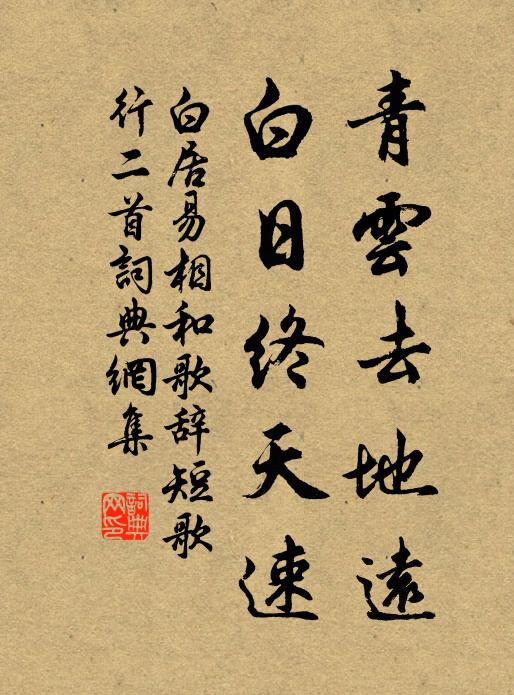 青雲去地遠
白日終天速
白居易相和歌辞短歌
行二首詞典網集
詞典網印